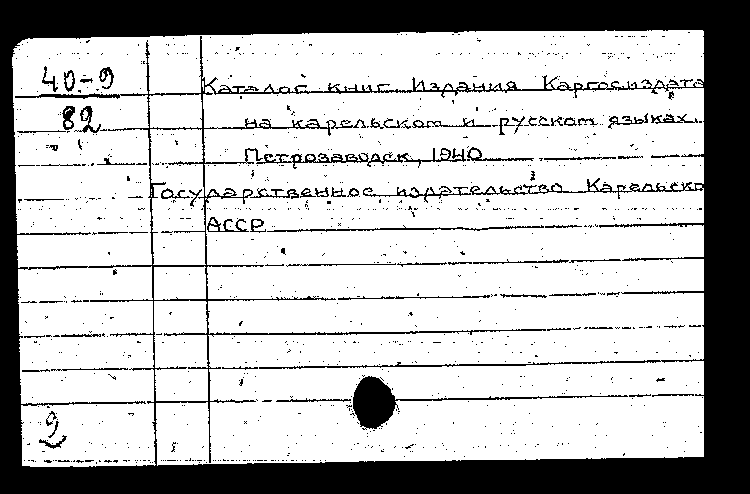 40-9
82
Каталог книг Издания Каргосиздата
на карельском и русском языках.
Петрозаводск, 1940
Государственное издательство Карельско
АССР
2